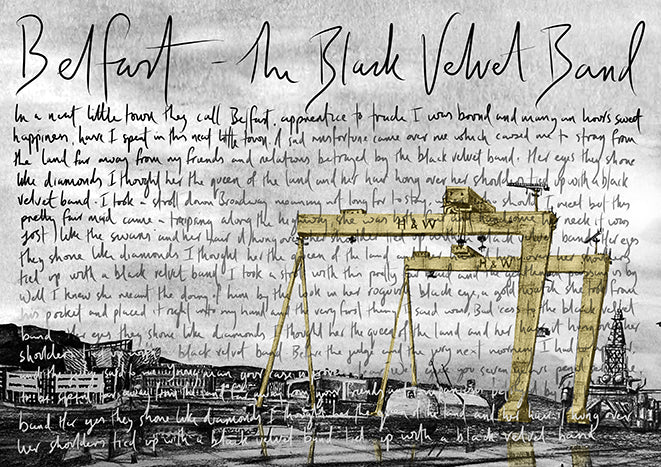 Belfast - The Black Velvet Band
In a neat little town they call Belfast, apprentice to trade I was bound and many an hours sweet
happiness, have I spent in this neat little town. A sad misfortune came over me which caused me to stray from
the land far away from my friends and relations betrayed by the black velvet band. Her eyes they shone
like diamonds I thought her the queen of the land and her hair hung over her shoulder tied up with a black
velvet band. I took a stroll down Broadway meaning not long for to stay. When who should I meet but this
pretty fair maid came a traipsing along the highway she was both handsome neck it was
just like the swans and her hair it hung over her shoulder tied velvet band. Her eyes
they shone like diamonds I thought her the queen of the land and her hair hung over her shoulder
tied up with a black velvet band. I took a stroll with this pretty and the gentleman passing us by
Well I knew she meant the doing of him by the look in her roguish black eye, a gold watch she took from
his pocket and placed it right into my hand and the very first thing I said was, Bad cess to the black velvet
band. Her eyes they shone like diamonds I thought her the queen of the land and her hair it hung over her
shoulder black velvet band. Before the judge and the very next morning I had to
H&W
H&W
band Her eyes they shone like diamonds I thought her the queen of the land and her hair it hung over
her shoulders tied up with a black velvet band tied up with a black velvet band